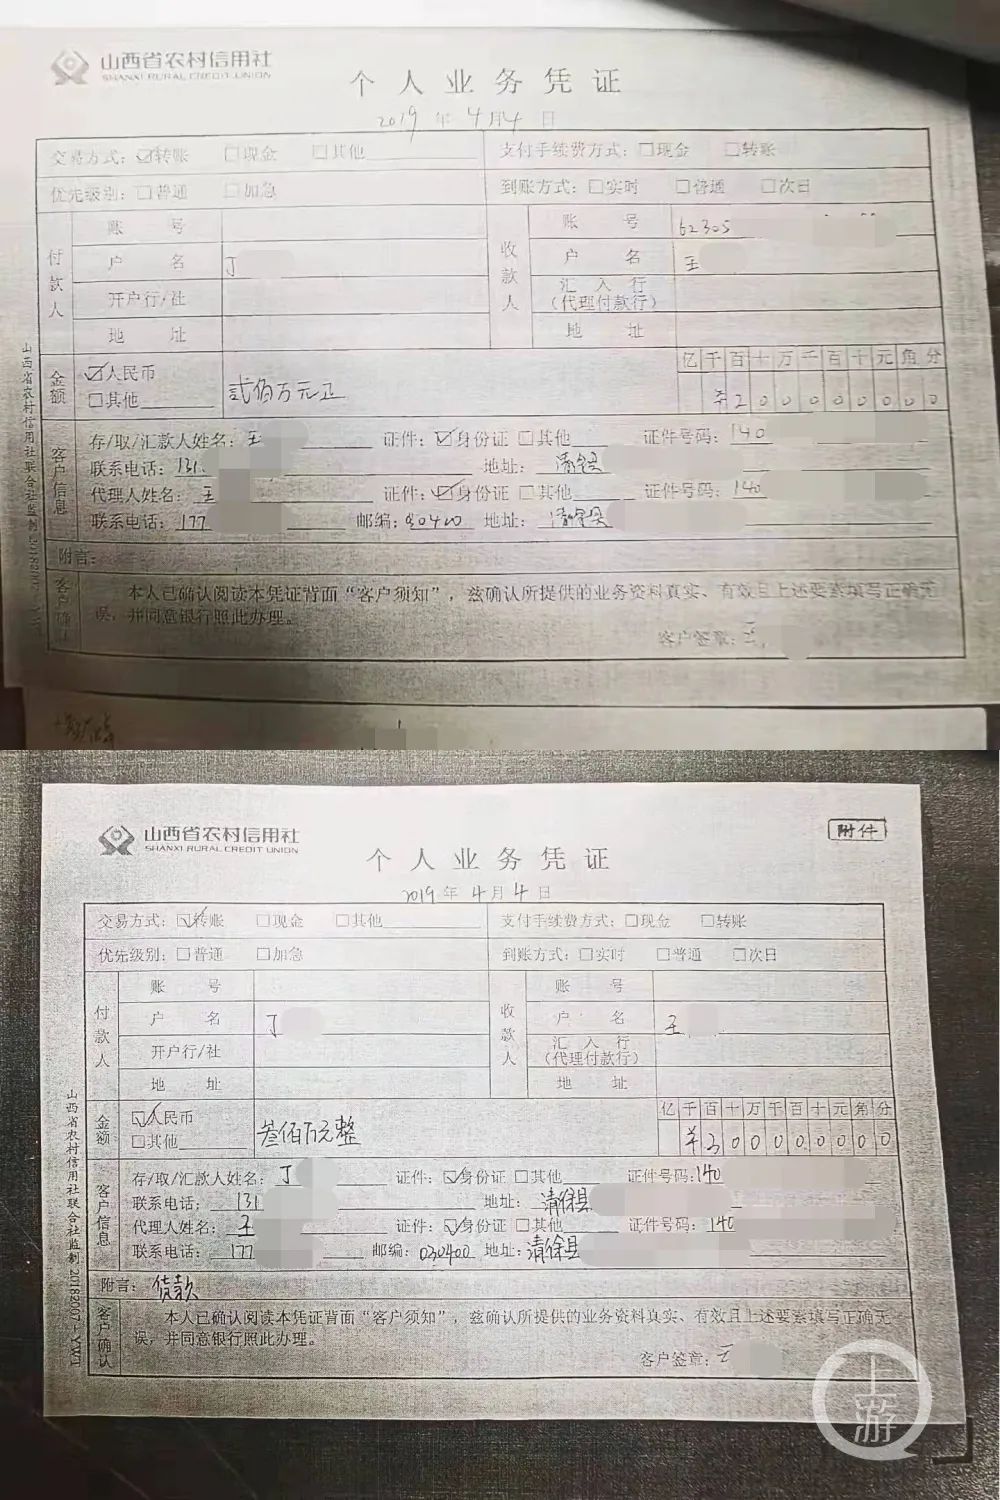 山西省农村信用社
SHANXI RURAL CREDIT UNION
个人业务凭证
2019年4月4日
交易方式：☑转账 □现金 □其他 支付手续费方式：□现金 □转账
优先级别：□普通 □加急 到账方式：□实时 □普通 □次日
付款人 账号 收款人 账号 62305
户名 丁 户名 王
开户行/社 汇入行（代理付款行）
地址 地址
金额 ☑人民币 □其他 贰佰万元正 亿千百十万千百十元角分
¥200000000
客户信息 存/取/汇款人姓名：王 证件：☑身份证 □其他 证件号码：140
联系电话：131 地址：清徐县
代理人姓名：王 证件：☑身份证 □其他 证件号码：140
联系电话：177 邮编：030400 地址：清徐县
附言：
客户确认 本人已确认阅读本凭证背面“客户须知”，兹确认所提供的业务资料真实、有效且上述要素填写正确无
误，并同意银行照此办理。
客户签章：王
山西省农村信用社联合社监制
山西省农村信用社
SHANXI RURAL CREDIT UNION
附件
个人业务凭证
2019年4月4日
交易方式：☑转账 □现金 □其他 支付手续费方式：□现金 □转账
优先级别：□普通 □加急 到账方式：□实时 □普通 □次日
付款人 账号 收款人 账号
户名 丁 户名 王
开户行/社 汇入行（代理付款行）
地址 地址
金额 ☑人民币 □其他 叁佰万元整 亿千百十万千百十元角分
¥300000000
客户信息 存/取/汇款人姓名：丁 证件：☑身份证 □其他 证件号码：140
联系电话：131 地址：清徐县
代理人姓名：王 证件：☑身份证 □其他 证件号码：140
联系电话：177 邮编：030400 地址：清徐县
附言：货款
客户确认 本人已确认阅读本凭证背面“客户须知”，兹确认所提供的业务资料真实、有效且上述要素填写正确无
误，并同意银行照此办理。
客户签章：王
山西省农村信用社联合社监制
上游